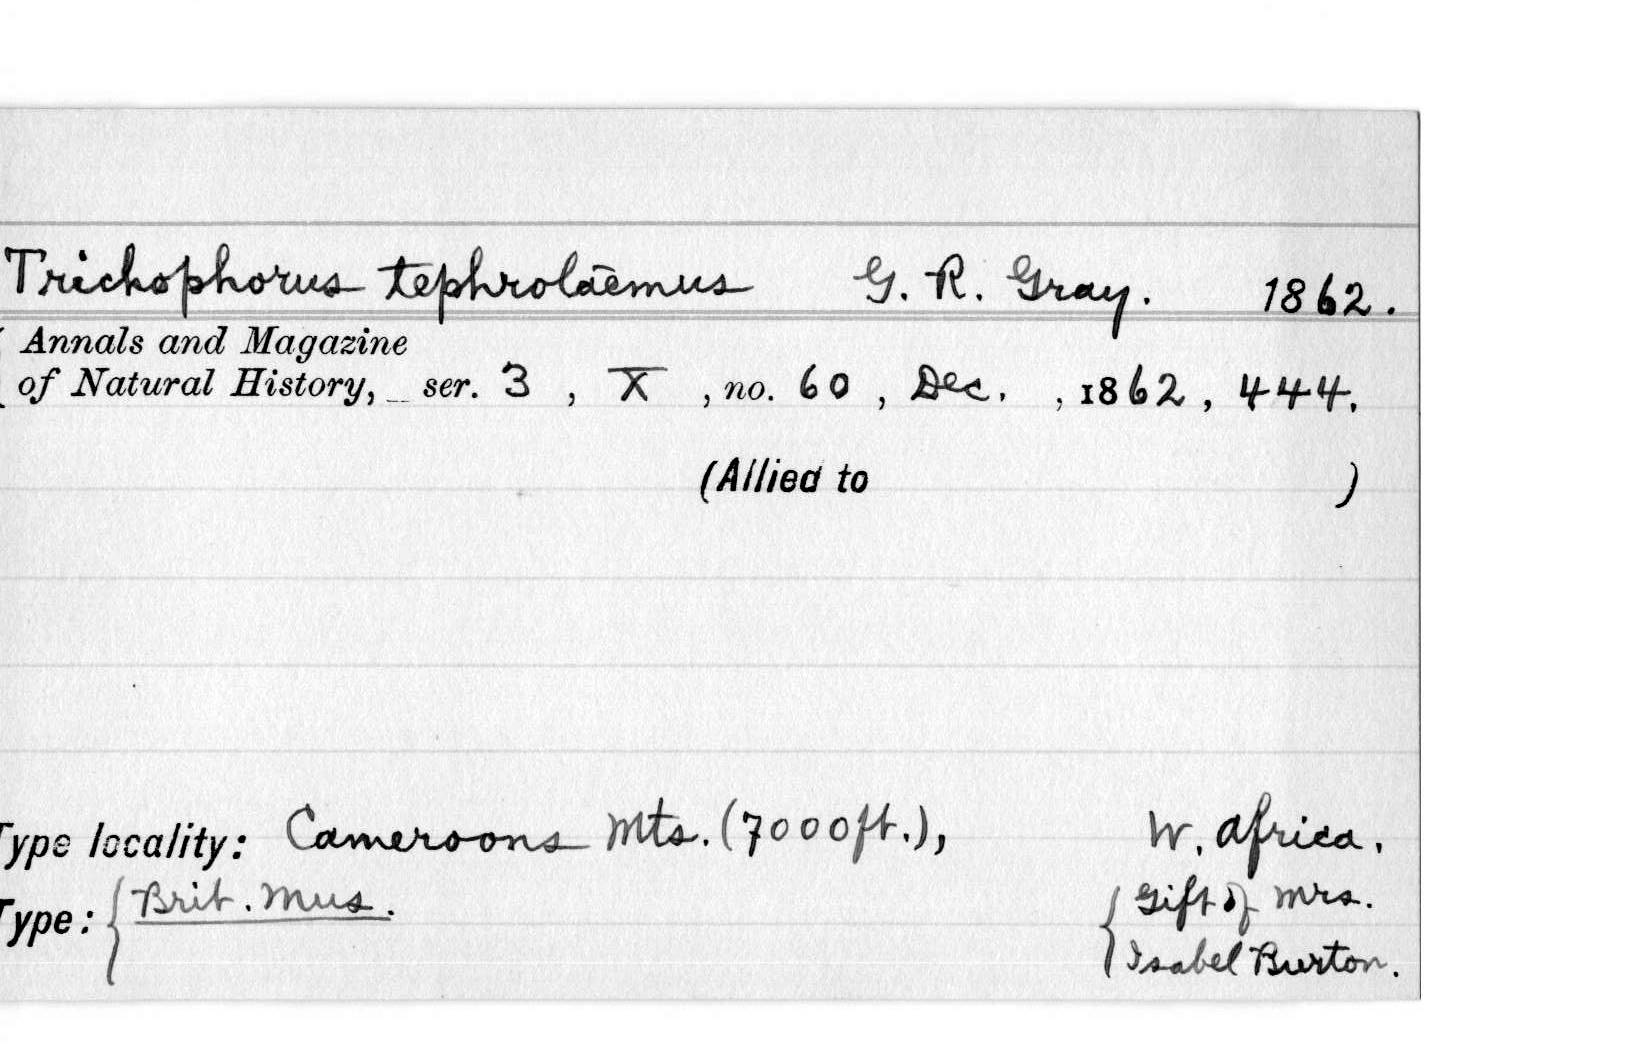 Trichophorus tephrolāemus G. R. Gray. 1862.
Annals and Magazine
of Natural History, ser. 3, X, no. 60, Dec., 1862, 444.
(Allied to )
Type locality: Cameroons Mts. (7000ft.), W. Africa.
Type: { Brit. Mus. { Gift of Mrs.
Isabel Burton.